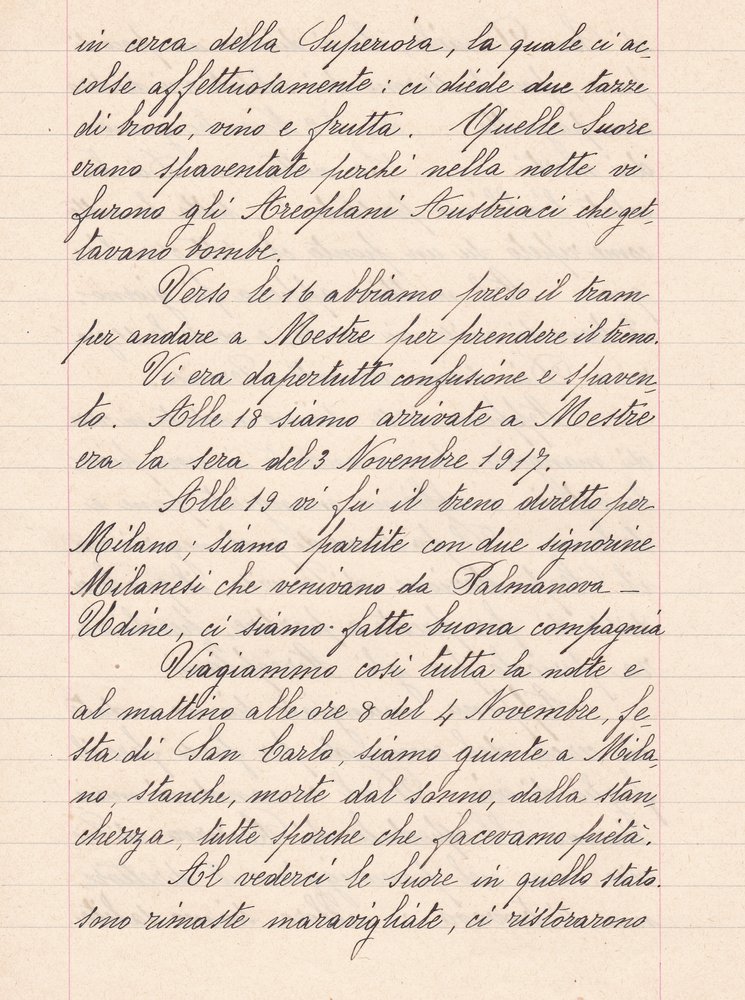 in cerca della Superiora, la quale ci ac-
colse affettuosamente: ci diede due tazze
di brodo, vino e frutta. Quelle Suore
erano spaventate perchè nella notte vi
furono gli Areoplani Austriaci che get-
tavano bombe.
Verso le 16 abbiamo preso il tram
per andare a Mestre per prendere il treno.
Vi era dapertutto confusione e spaven-
to. Alle 18 siamo arrivate a Mestre
era la sera del 3 Novembre 1917.
Alle 19 vi fù il treno diretto per
Milano; siamo partite con due signorine
Milanesi che venivano da Palmanova -
Udine, ci siamo fatte buona compagnia
Viagiammo così tutta la notte e
al mattino alle ore 8 del 4 Novembre, fe-
sta di San Carlo, siamo giunte a Mila-
no, stanche, morte dal sonno, dalla stan-
chezza, tutte sporche che facevamo pietà.
Al vederci le Suore in quello stato.
sono rimaste maravigliate, ci ristorarono